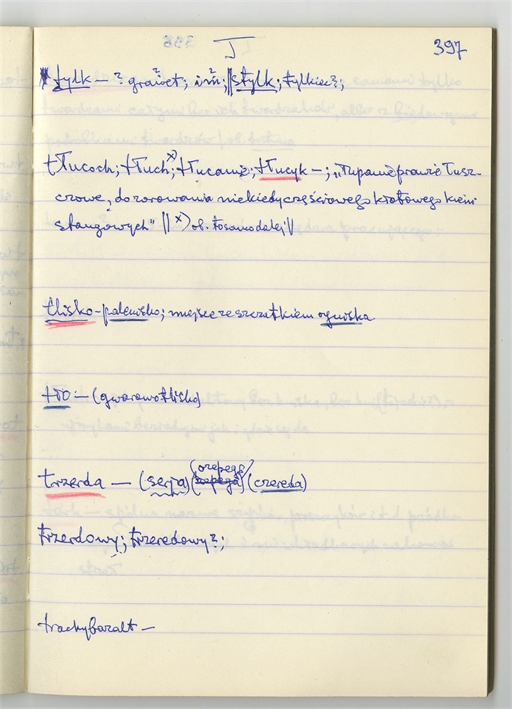 T 397
tylk – ? grawet; im; || stylk; tylkiec?;
tłucoch; tłuch x); tłucanie; tłucyk –; „łupanie prawie łusz-
czowe, do rozowania niekiedy częściowego krotowego kieni
stangowych" || x) ob. to samo dalej ||
tlisko – palewisko; miejsce ze szczątkiem ogniska
tło – (gwarowo tlisko)
trzerda – (serja) (czereda)
trzerdowy; trzeredowy?;
trachybazalt –